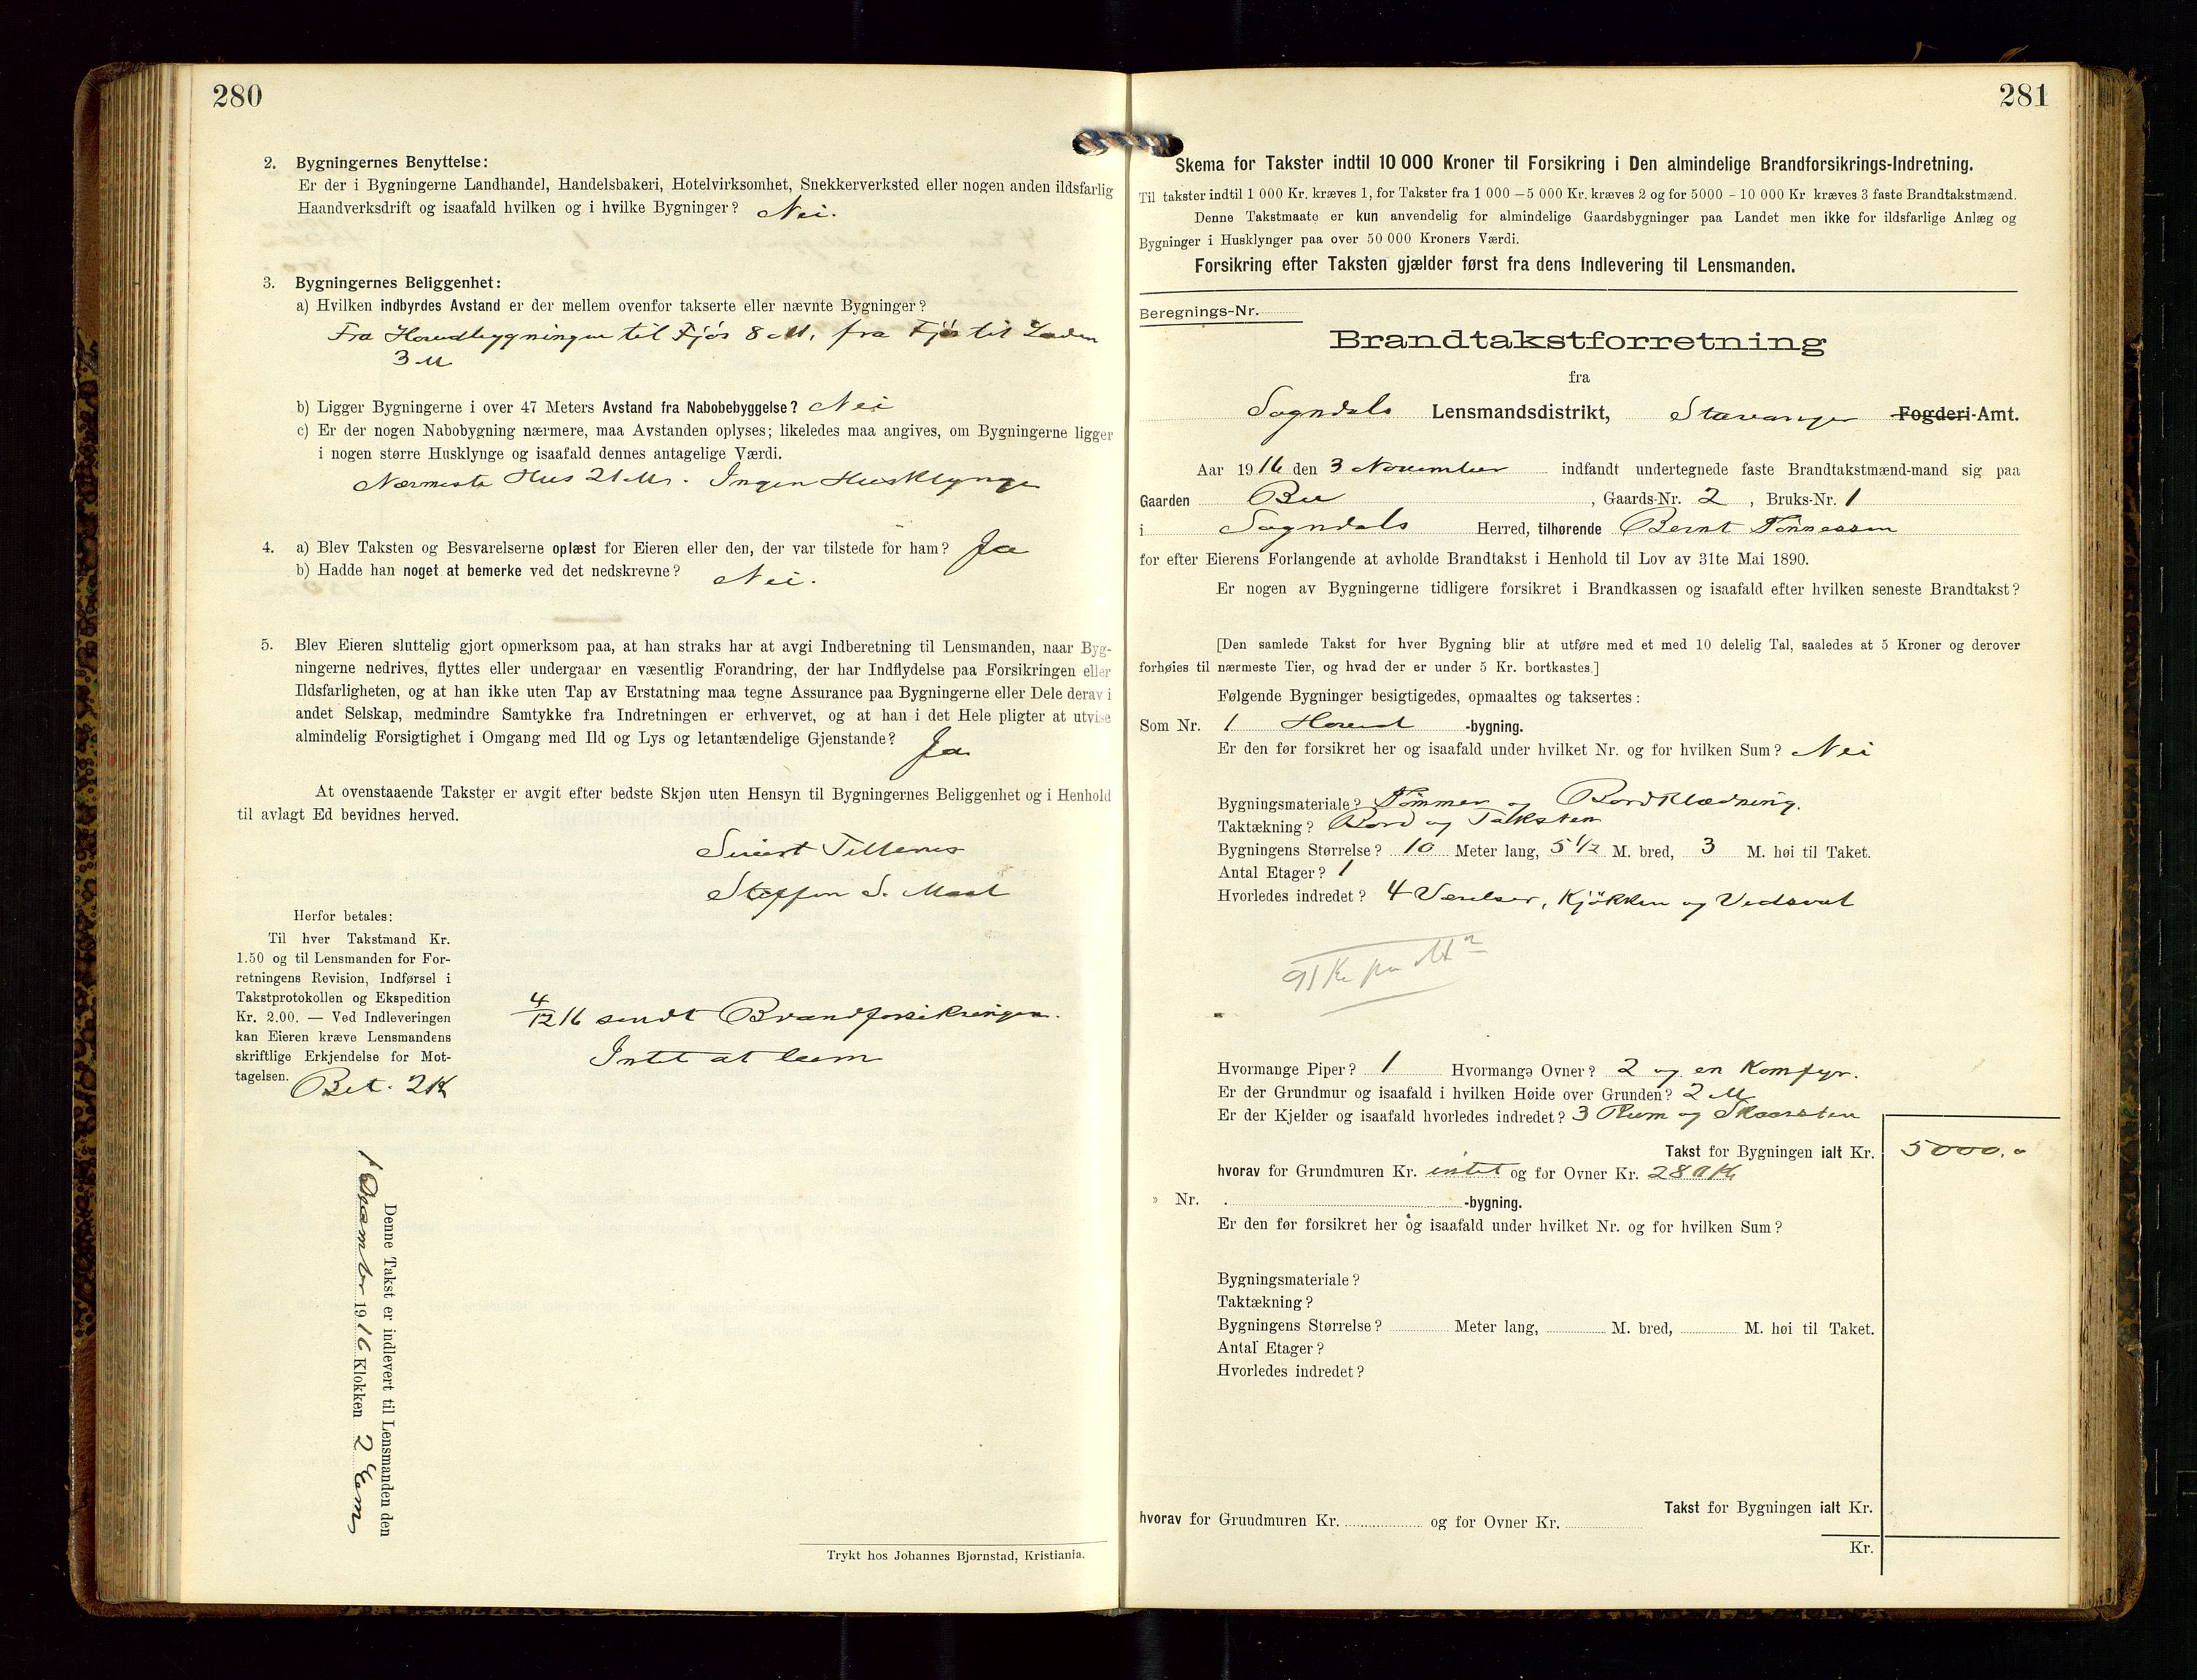 280
2. Bygningernes Benyttelse:
Er der i Bygningerne Landhandel, Handelsbakeri, Hotelvirksomhet, Snekkerverksted eller nogen anden ildsfarlig
Haandverksdrift og isaafald hvilken og i hvilke Bygninger? Nei.
3. Bygningernes Beliggenhet:
a) Hvilken indbyrdes Avstand er der mellem ovenfor takserte eller nævnte Bygninger?
Fra Hovedbygningen til Fjös 8 M, fra Fjös til Laden
3 M
b) Ligger Bygningerne i over 47 Meters Avstand fra Nabobebyggelse? Nei
c) Er der nogen Nabobygning nærmere, maa Avstanden oplyses; likeledes maa angives, om Bygningerne ligger
i nogen større Husklynge og isaafald dennes antagelige Værdi.
Nærmeste Hus 21 M. Ingen Husklynge
4. a) Blev Taksten og Besvarelserne oplæst for Eieren eller den, der var tilstede for ham? Ja
b) Hadde han noget at bemerke ved det nedskrevne? Nei.
5. Blev Eieren sluttelig gjort opmerksom paa, at han straks har at avgi Indberetning til Lensmanden, naar Byg-
ningerne nedrives, flyttes eller undergaar en væsentlig Forandring, der har Indflydelse paa Forsikringen eller
Ildsfarligheten, og at han ikke uten Tap av Erstatning maa tegne Assurance paa Bygningerne eller Dele derav i
andet Selskap, medmindre Samtykke fra Indretningen er erhvervet, og at han i det Hele pligter at utvise
almindelig Forsigtighet i Omgang med Ild og Lys og letantændelige Gjenstande? Ja
At ovenstaaende Takster er avgit efter bedste Skjøn uten Hensyn til Bygningernes Beliggenhet og i Henhold
til avlagt Ed bevidnes herved.
Sivert Tellenes
Steffen S. Maal
Herfor betales:
Til hver Takstmand Kr.
1.50 og til Lensmanden for For-
retningens Revision, Indførsel i
Takstprotokollen og Ekspedition
Kr. 2.00. — Ved Indleveringen
kan Eieren kræve Lensmandens
skriftlige Erkjendelse for Mot-
tagelsen. Bet. 2 K
4/12 16 sendt Brandforsikringen.
Intet at
Denne Takst er indlevert til Lensmanden den
1 December 1916 Klokken 2 Em
Trykt hos Johannes Bjørnstad, Kristiania.
281
Skema for Takster indtil 10 000 Kroner til Forsikring i Den almindelige Brandforsikrings-Indretning.
Til takster indtil 1 000 Kr. kræves 1, for Takster fra 1 000 — 5 000 Kr. kræves 2 og for 5000 - 10 000 Kr kræves 3 faste Brandtakstmænd.
Denne Takstmaate er kun anvendelig for almindelige Gaardsbygninger paa Landet men ikke for ildsfarlige Anlæg og
Bygninger i Husklynger paa over 50 000 Kroners Værdi.
Forsikring efter Taksten gjælder først fra dens Indlevering til Lensmanden.
Beregnings-Nr.
Brandtakstforretning
fra
Sogndals Lensmandsdistrikt, Stavanger Fogderi-Amt.
Aar 1916 den 3 November indfandt undertegnede faste Brandtakstmænd-mand sig paa
Gaarden Bu, Gaards-Nr. 2, Bruks-Nr. 1
i Sogndals Herred, tilhørende Bernt Tönnessen
for efter Eierens Forlangende at avholde Brandtakst i Henhold til Lov av 31te Mai 1890.
Er nogen av Bygningerne tidligere forsikret i Brandkassen og isaafald efter hvilken seneste Brandtakst?
[Den samlede Takst for hver Bygning blir at utføre med et med 10 delelig Tal, saaledes at 5 Kroner og derover
forhøies til nærmeste Tier, og hvad der er under 5 Kr. bortkastes.]
Følgende Bygninger besigtigedes, opmaaltes og taksertes:
Som Nr. 1 Hoved -bygning.
Er den før forsikret her og isaafald under hvilket Nr. og for hvilken Sum? Nei
Bygningsmateriale? Tömmer og Bordklædning.
Taktækning? Bord og Taksten
Bygningens Størrelse? 10 Meter lang, 5 1/2 M. bred, 3 M. høi til Taket.
Antal Etager? 1
Hvorledes indredet? 4 Værelser, Kjökken og Vedsval
91 Kr pr M²
Hvormange Piper? 1 Hvormange Ovner? 2 og en Komfyr.
Er der Grundmur og isaafald i hvilken Høide over Grunden? 2 M
Er der Kjelder og isaafald hvorledes indredet? 3 Rum og Skorsten
Takst for Bygningen ialt Kr. 5000,0
hvorav for Grundmuren Kr. intet og for Ovner Kr. 280 Kr
» Nr. -bygning.
Er den før forsikret her og isaafald under hvilket Nr. og for hvilken Sum?
Bygningsmateriale?
Taktækning?
Bygningens Størrelse? Meter lang, M. bred, M. høi til Taket.
Antal Etager?
Hvorledes indredet?
Takst for Bygningen ialt Kr.
hvorav for Grundmuren Kr. og for Ovner Kr.
Kr.